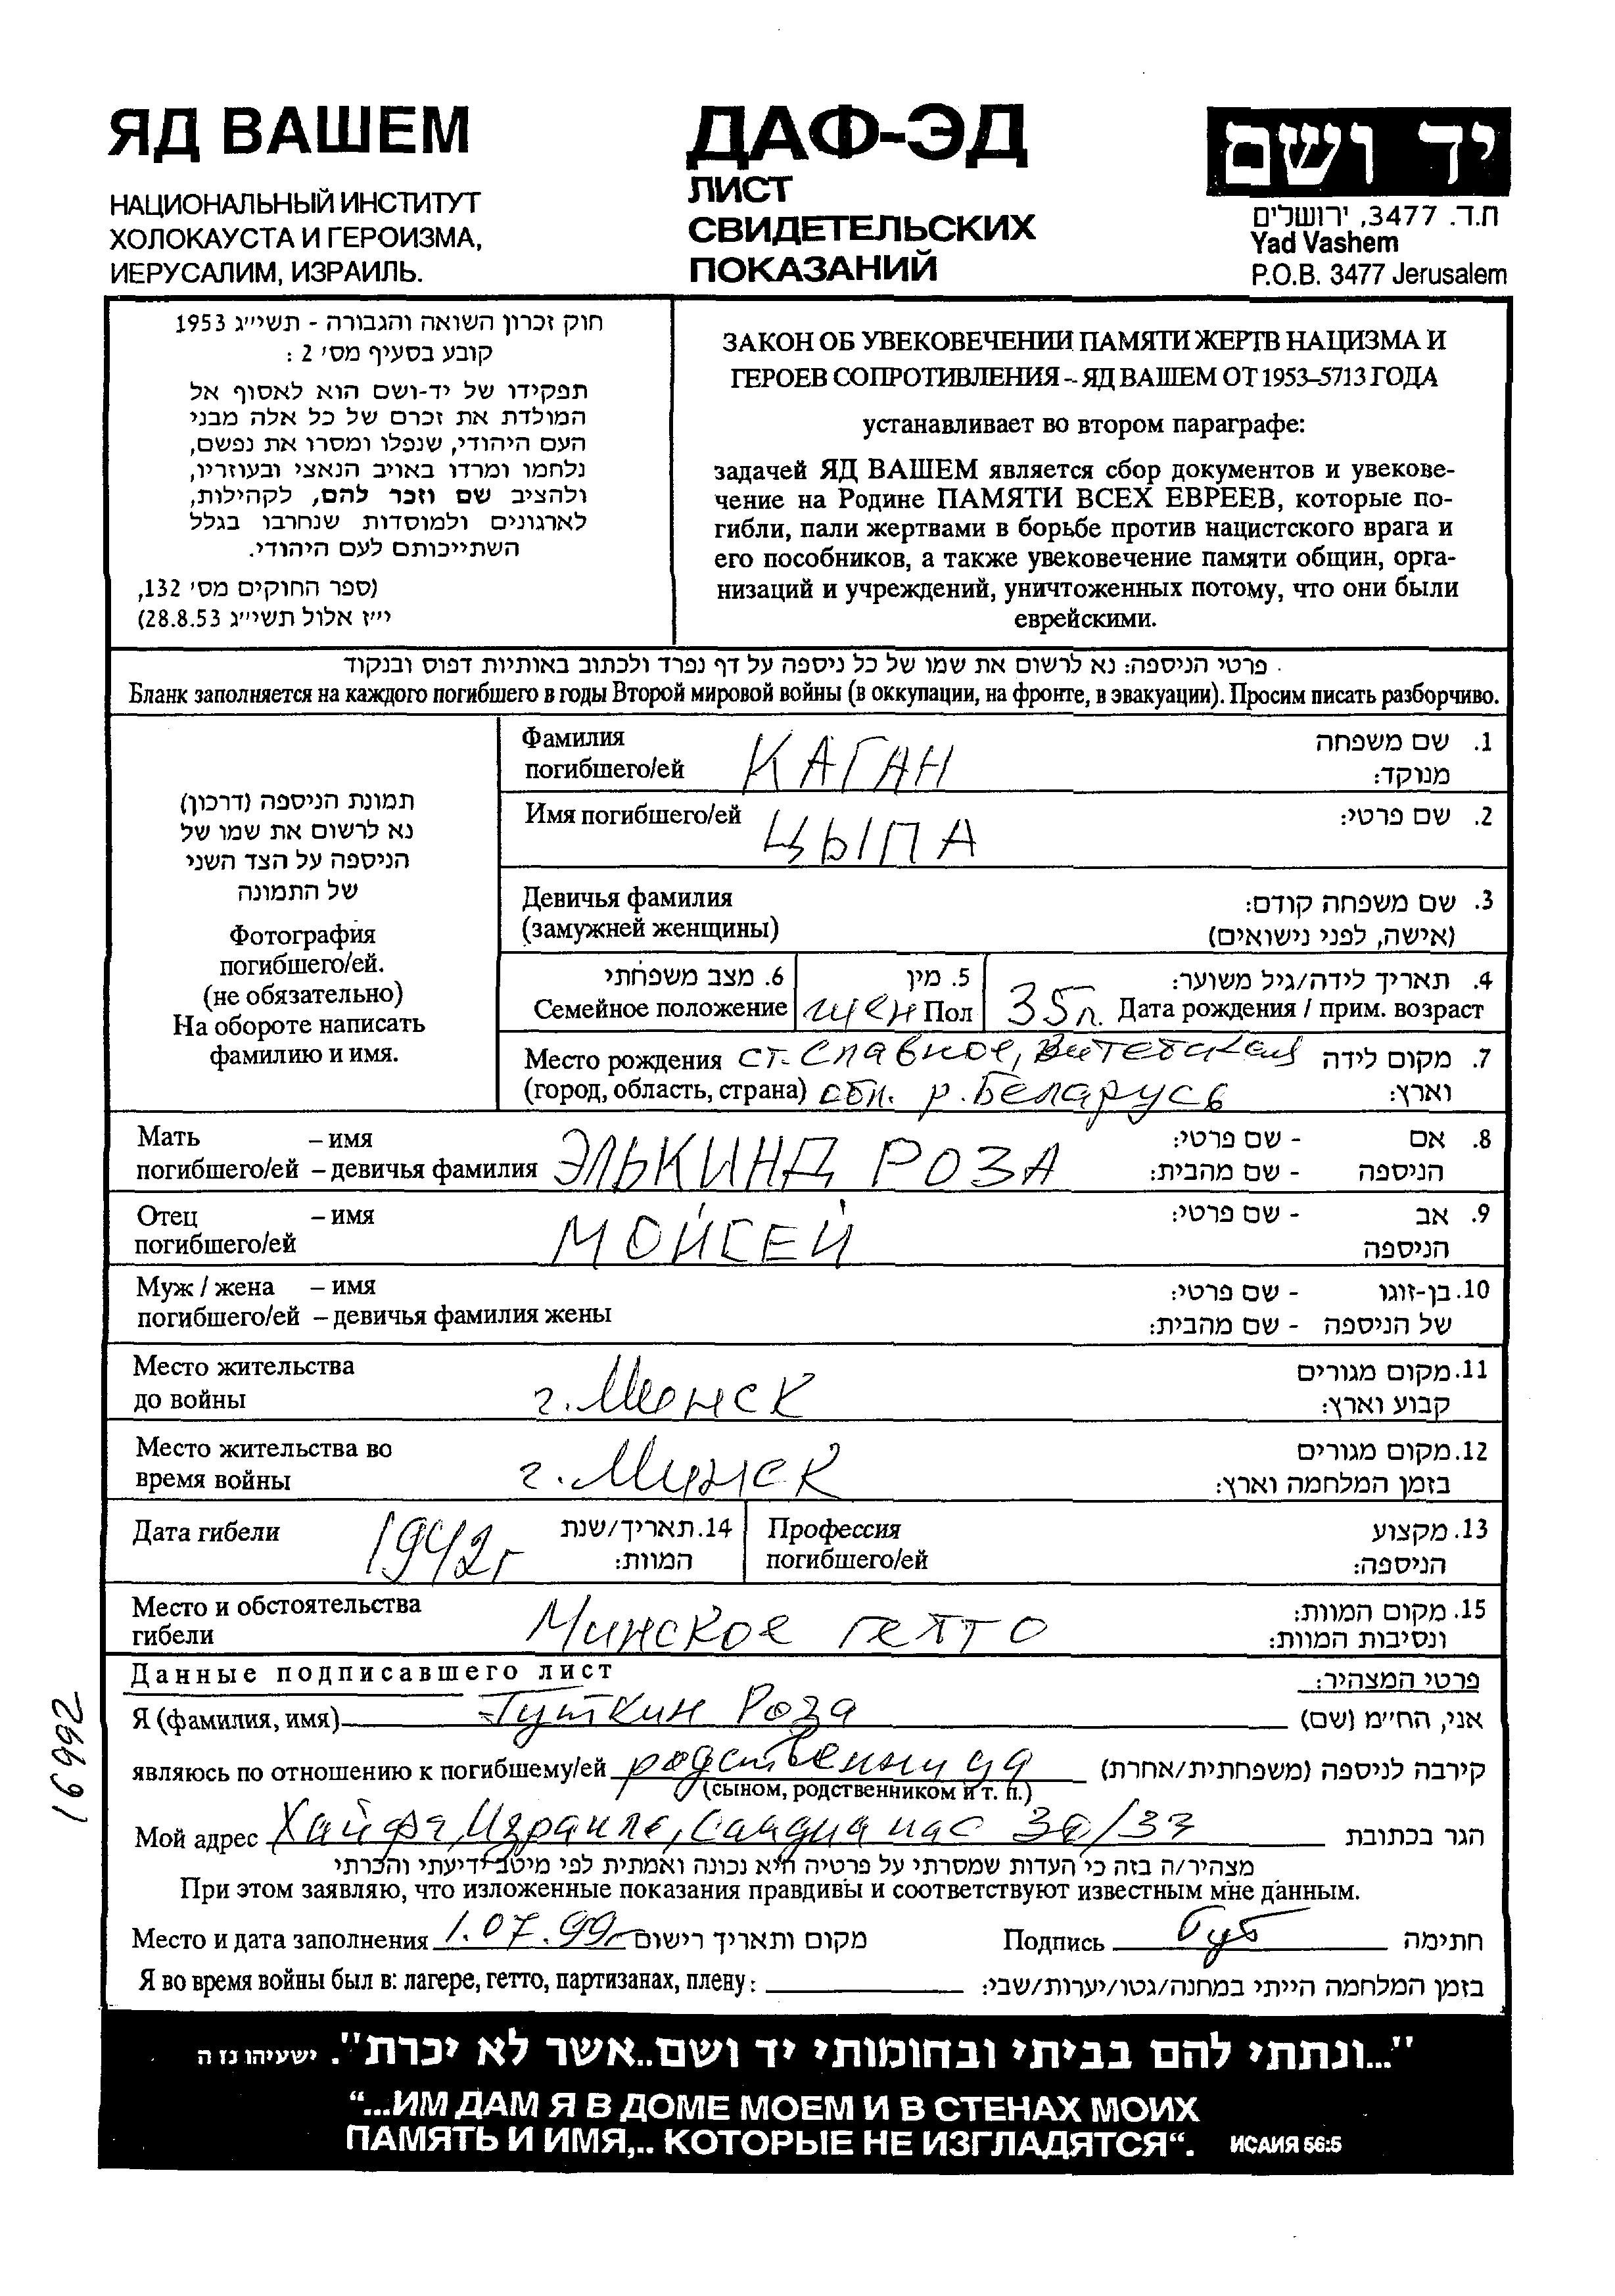 ЯД ВАШЕМ
НАЦИОНАЛЬНЫЙ ИНСТИТУТ
ХОЛОКАУСТА И ГЕРОИЗМА,
ИЕРУСАЛИМ, ИЗРАИЛЬ.
ДАФ-ЭД
ЛИСТ
СВИДЕТЕЛЬСКИХ
ПОКАЗАНИЙ
יד ושם
ת.ד. 3477, ירושלים
Yad Vashem
P.O.B. 3477 Jerusalem
חוק זכרון השואה והגבורה - תשי״ג 1953
קובע בסעיף מס׳ 2 :
תפקידו של יד-ושם הוא לאסוף אל
המולדת את זכרם של כל אלה מבני
העם היהודי, שנפלו ומסרו את נפשם,
נלחמו ומרדו באויב הנאצי ובעוזריו,
ולהציב שם וזכר להם, לקהילות,
לארגונים ולמוסדות שנחרבו בגלל
השתייכותם לעם היהודי.
(ספר החוקים מס׳ 132,
י״ז אלול תשי״ג 28.8.53)
ЗАКОН ОБ УВЕКОВЕЧЕНИИ ПАМЯТИ ЖЕРТВ НАЦИЗМА И
ГЕРОЕВ СОПРОТИВЛЕНИЯ – ЯД ВАШЕМ ОТ 1953–5713 ГОДА
устанавливает во втором параграфе:
задачей ЯД ВАШЕМ является сбор документов и увекове-
чение на Родине ПАМЯТИ ВСЕХ ЕВРЕЕВ, которые по-
гибли, пали жертвами в борьбе против нацистского врага и
его пособников, а также увековечение памяти общин, орга-
низаций и учреждений, уничтоженных потому, что они были
еврейскими.
פרטי הניספה: נא לרשום את שמו של כל ניספה על דף נפרד ולכתוב באותיות דפוס ובנקוד
Бланк заполняется на каждого погибшего в годы Второй мировой войны (в оккупации, на фронте, в эвакуации). Просим писать разборчиво.
תמונת הניספה (דרכון)
נא לרשום את שמו של
הניספה על הצד השני
של התמונה
Фотография
погибшего/ей.
(не обязательно)
На обороте написать
фамилию и имя.
Фамилия КАГАН 1. שם משפחה
погибшего/ей מנוקד:
Имя погибшего/ей ЦЫПА 2. שם פרטי:
Девичья фамилия 3. שם משפחה קודם:
(замужней женщины) (אישה, לפני נישואים)
6. מצב משפחתי 5. מין 4. תאריך לידה/גיל משוער:
Семейное положение жен Пол 35 л. Дата рождения / прим. возраст
Место рождения ст. Славное, Витебская 7. מקום לידה
(город, область, страна) обл. р. Беларусь וארץ:
Мать – имя 8. אם - שם פרטי:
погибшего/ей – девичья фамилия ЭЛЬКИНД РОЗА הניספה - שם מהבית:
Отец – имя МОЙСЕЙ 9. אב - שם פרטי:
погибшего/ей הניספה
Муж / жена – имя 10. בן-זוגו - שם פרטי:
погибшего/ей – девичья фамилия жены של הניספה - שם מהבית:
Место жительства 11. מקום מגורים
до войны г. Минск קבוע וארץ:
Место жительства во 12. מקום מגורים
время войны г. Минск בזמן המלחמה וארץ:
Дата гибели 1942 г 14. תאריך/שנת Профессия 13. מקצוע
המוות: погибшего/ей הניספה:
Место и обстоятельства 15. מקום המוות:
гибели Минское гетто ונסיבות המוות:
Данные подписавшего лист פרטי המצהיר:
Я (фамилия, имя) Гуткин Роза אני, הח״מ (שם)
являюсь по отношению к погибшему/ей родственница קירבה לניספה (משפחתית/אחרת)
(сыном, родственником и т. п.)
Мой адрес Хайфа, Израиль, 30/33 הגר בכתובת
מצהיר/ה בזה כי העדות שמסרתי על פרטיה היא נכונה ואמתית לפי מיטב ידיעתי והכרתי
При этом заявляю, что изложенные показания правдивы и соответствуют известным мне данным.
Место и дата заполнения 1.07.99г. מקום ותאריך רישום Подпись חתימה
Я во время войны был в: лагере, гетто, партизанах, плену: בזמן המלחמה הייתי במחנה/גטו/יערות/שבי:
16992
"...ונתתי להם בביתי ובחומותי יד ושם..אשר לא יכרת". ישעיהו נו ה
“...ИМ ДАМ Я В ДОМЕ МОЕМ И В СТЕНАХ МОИХ
ПАМЯТЬ И ИМЯ,.. КОТОРЫЕ НЕ ИЗГЛАДЯТСЯ“. ИСАИЯ 56:5